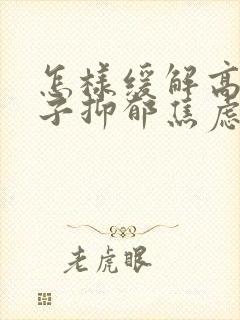 怎样缓解高
子抑郁焦虑
老虎眼